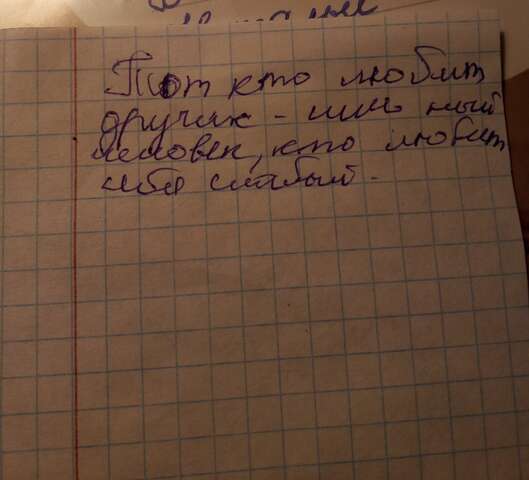 Тот кто любит
других - силь ный
человек, кто любит
себя слабый.